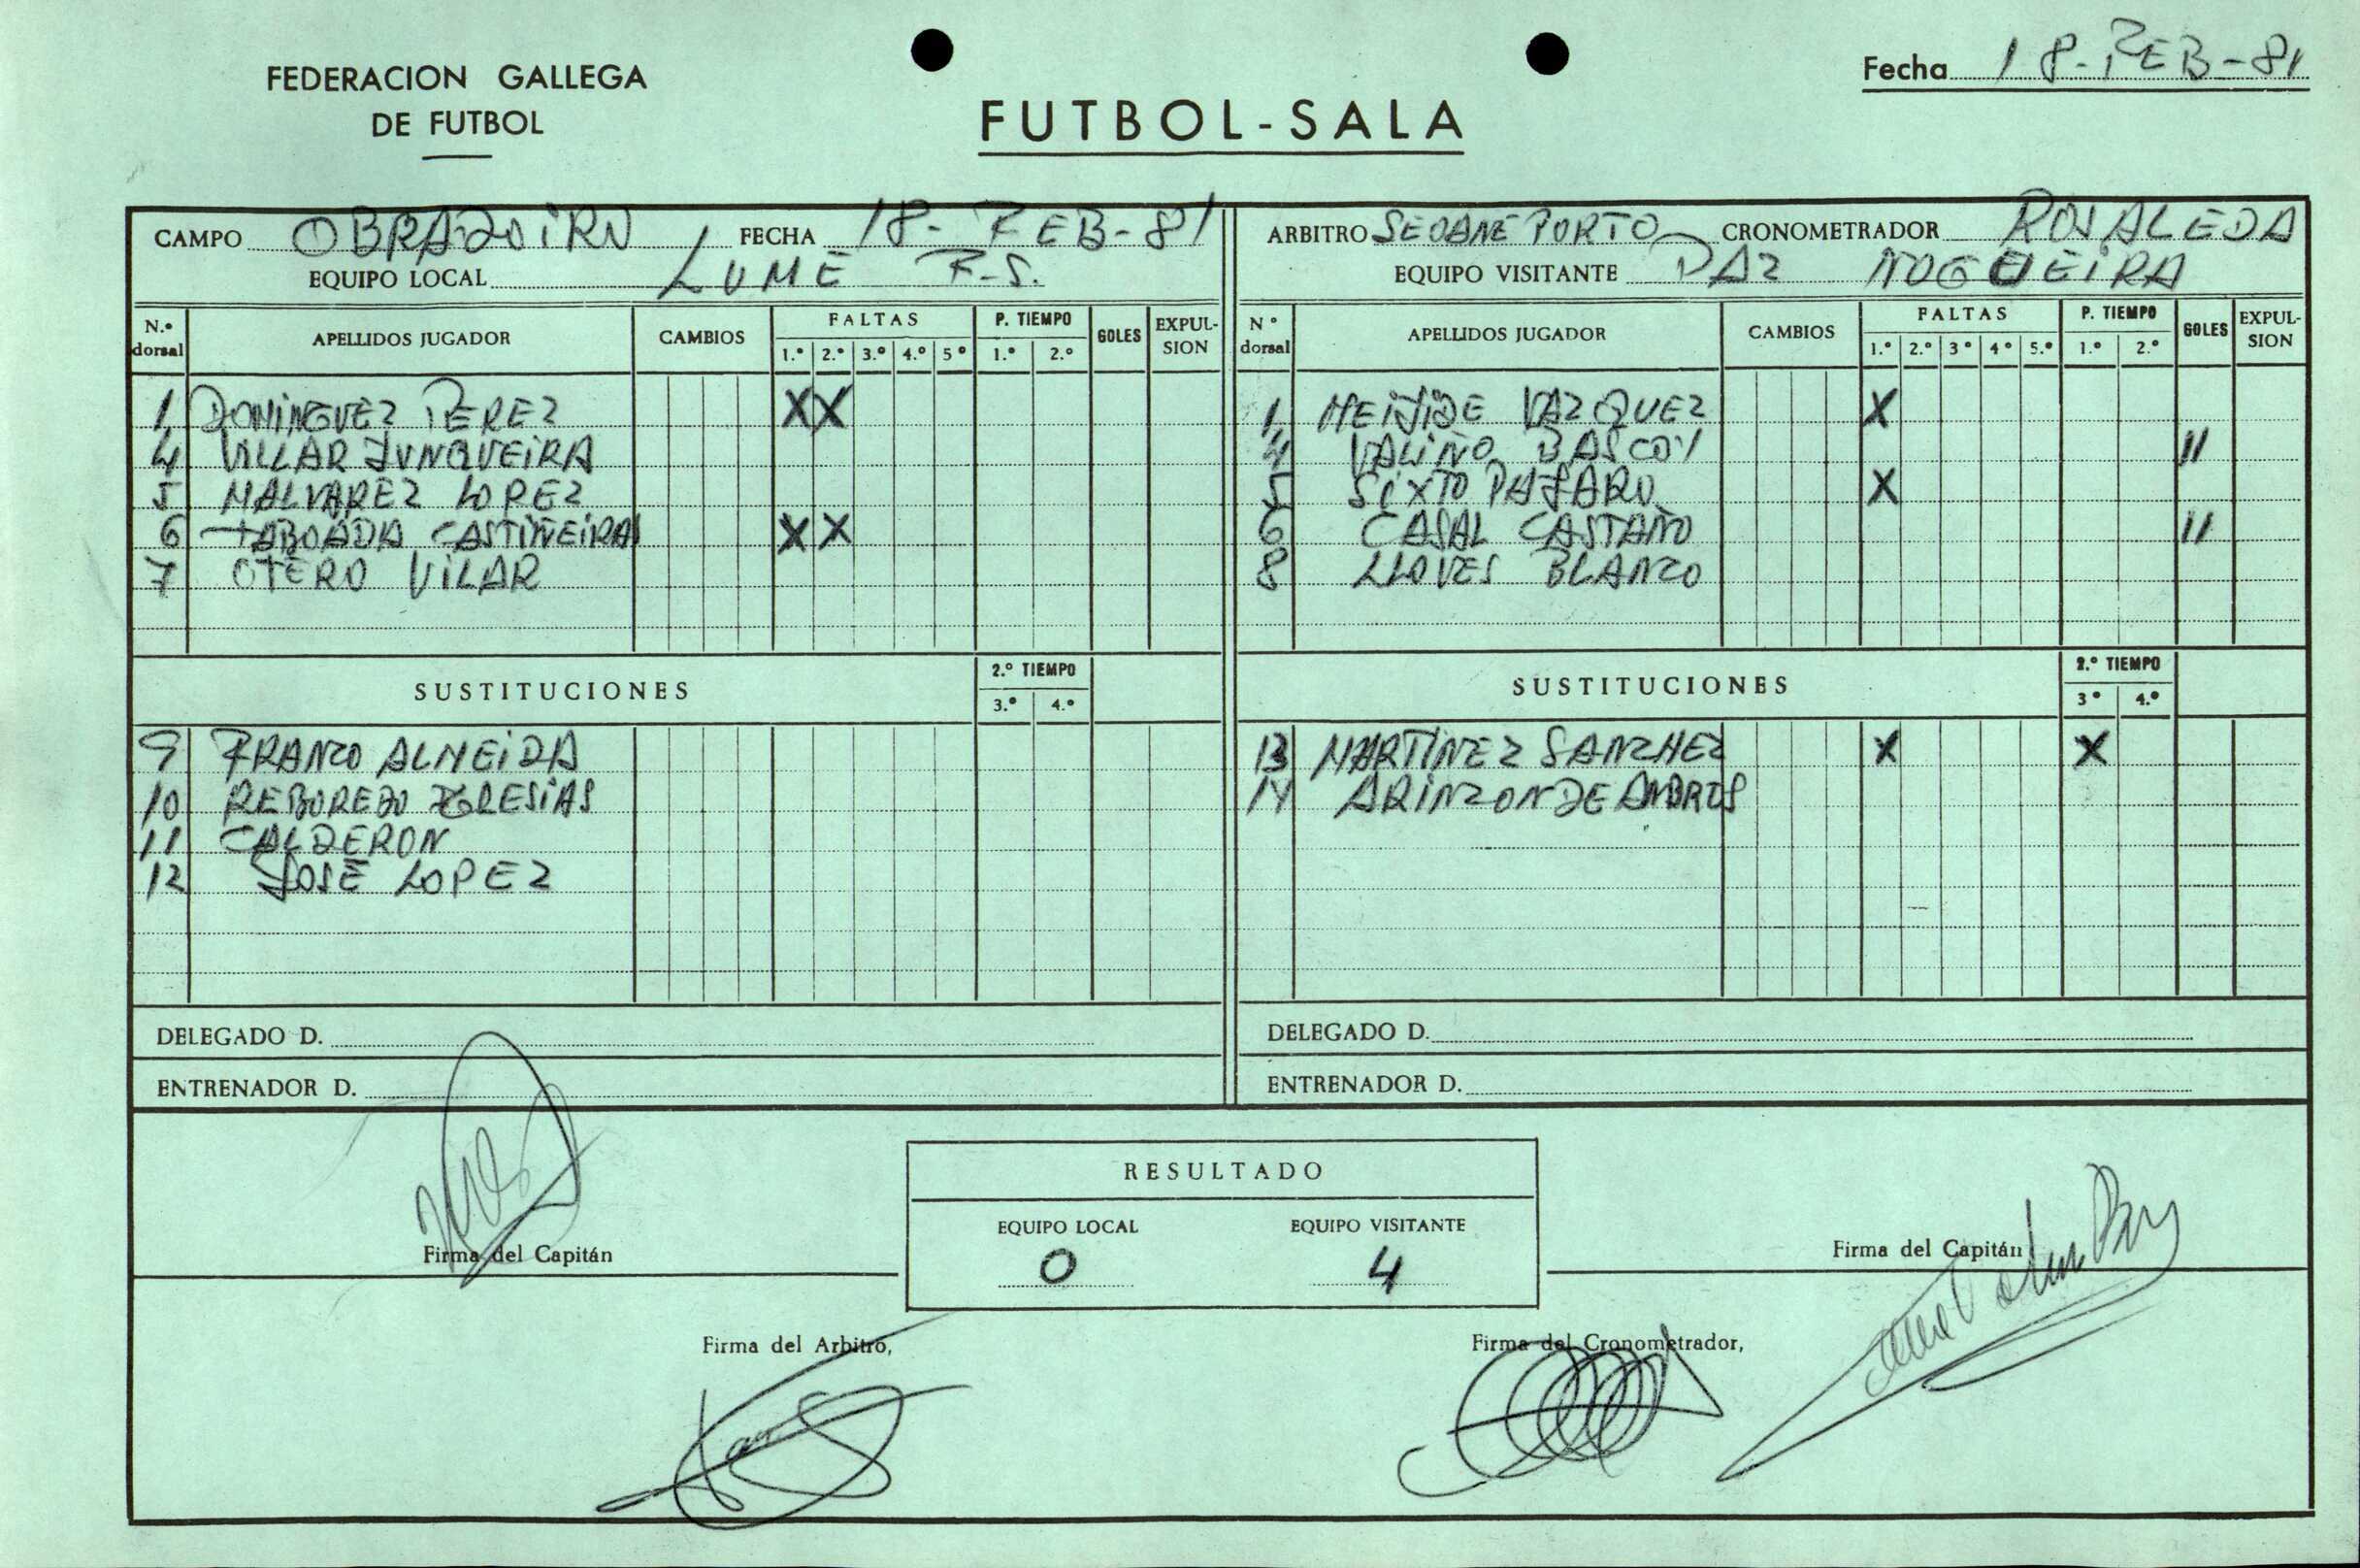 FEDERACION GALLEGA
DE FUTBOL
FUTBOL-SALA
Fecha 18-FEB-81
CAMPO OBRADOIRO FECHA 18-FEB-81
EQUIPO LOCAL LUME F.S.
N.º dorsal APELLIDOS JUGADOR CAMBIOS FALTAS 1.º 2.º 3.º 4.º 5º P. TIEMPO 1.º 2.º GOLES EXPULSION
1 DOMINGUEZ PEREZ X X
4 VILLAR JUNQUEIRA
5 MALVAREZ LOPEZ
6 TABOADA CASTIÑEIRAS X X
7 OTERO VILAR
SUSTITUCIONES 2.º TIEMPO 3.º 4.º
9 FRANCO ALMEIDA
10 REBOREDO IGLESIAS
11 CALDERON
12 JOSE LOPEZ
DELEGADO D.
ENTRENADOR D.
ARBITRO SEOANE PORTO CRONOMETRADOR ROSALEDA
EQUIPO VISITANTE PAZ NOGUEIRA
Nº dorsal APELLIDOS JUGADOR CAMBIOS FALTAS 1.º 2.º 3º 4º 5.º P. TIEMPO 1.º 2.º GOLES EXPULSION
1 MEIJIDE VAZQUEZ X
4 VALIÑO BASCOY II
5 SIXTO PAJARO X
6 CASAL CASTAÑO II
8 LLOVES BLANCO
SUSTITUCIONES 2.º TIEMPO 3º 4.º
13 MARTINEZ SANCHEZ X X
14
DELEGADO D.
ENTRENADOR D.
RESULTADO
EQUIPO LOCAL EQUIPO VISITANTE
0 4
Firma del Capitán
Firma del Capitán
Firma del Arbitro,
Firma del Cronometrador,